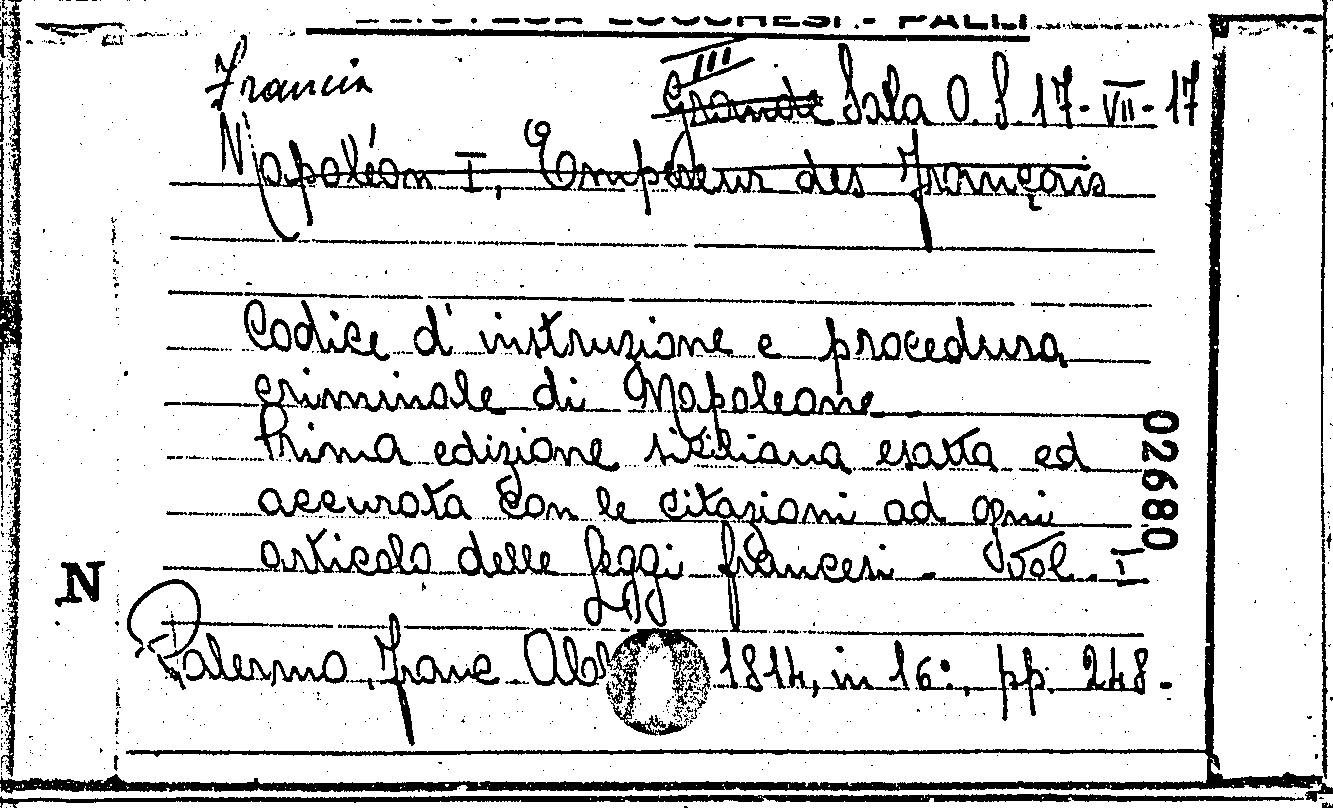 LUCCHESI - PALLI
Francia
III
Grande Sala O. S. 17-VII-17
Napoléon I, Empereur des Français
Codice d'instruzione e procedura
criminale di Napoleone
Prima edizione siciliana esatta ed
accurata con le citazioni ad ogni
articolo delle leggi francesi. Vol. I
02680
N
Palermo, Franc. 1814, in 16°, pp. 248.